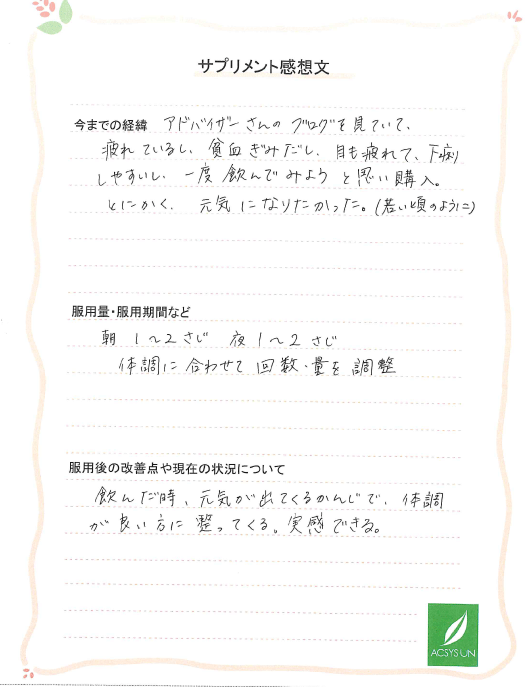 サプリメント感想文
今までの経緯 アドバイザーさんのブログを見ていて、
疲れているし、貧血ぎみだし、目も疲れて、下痢
しやすいし、一度飲んでみようと思い購入。
とにかく、元気になりたかった。(若い頃のように)
服用量・服用期間など
朝 1〜2さじ 夜 1〜2さじ
体調に合わせて回数・量を調整
服用後の改善点や現在の状況について
飲んだ時、元気が出てくるかんじで、体調
が良い方に整ってくる。実感できる。
ACSYSUN